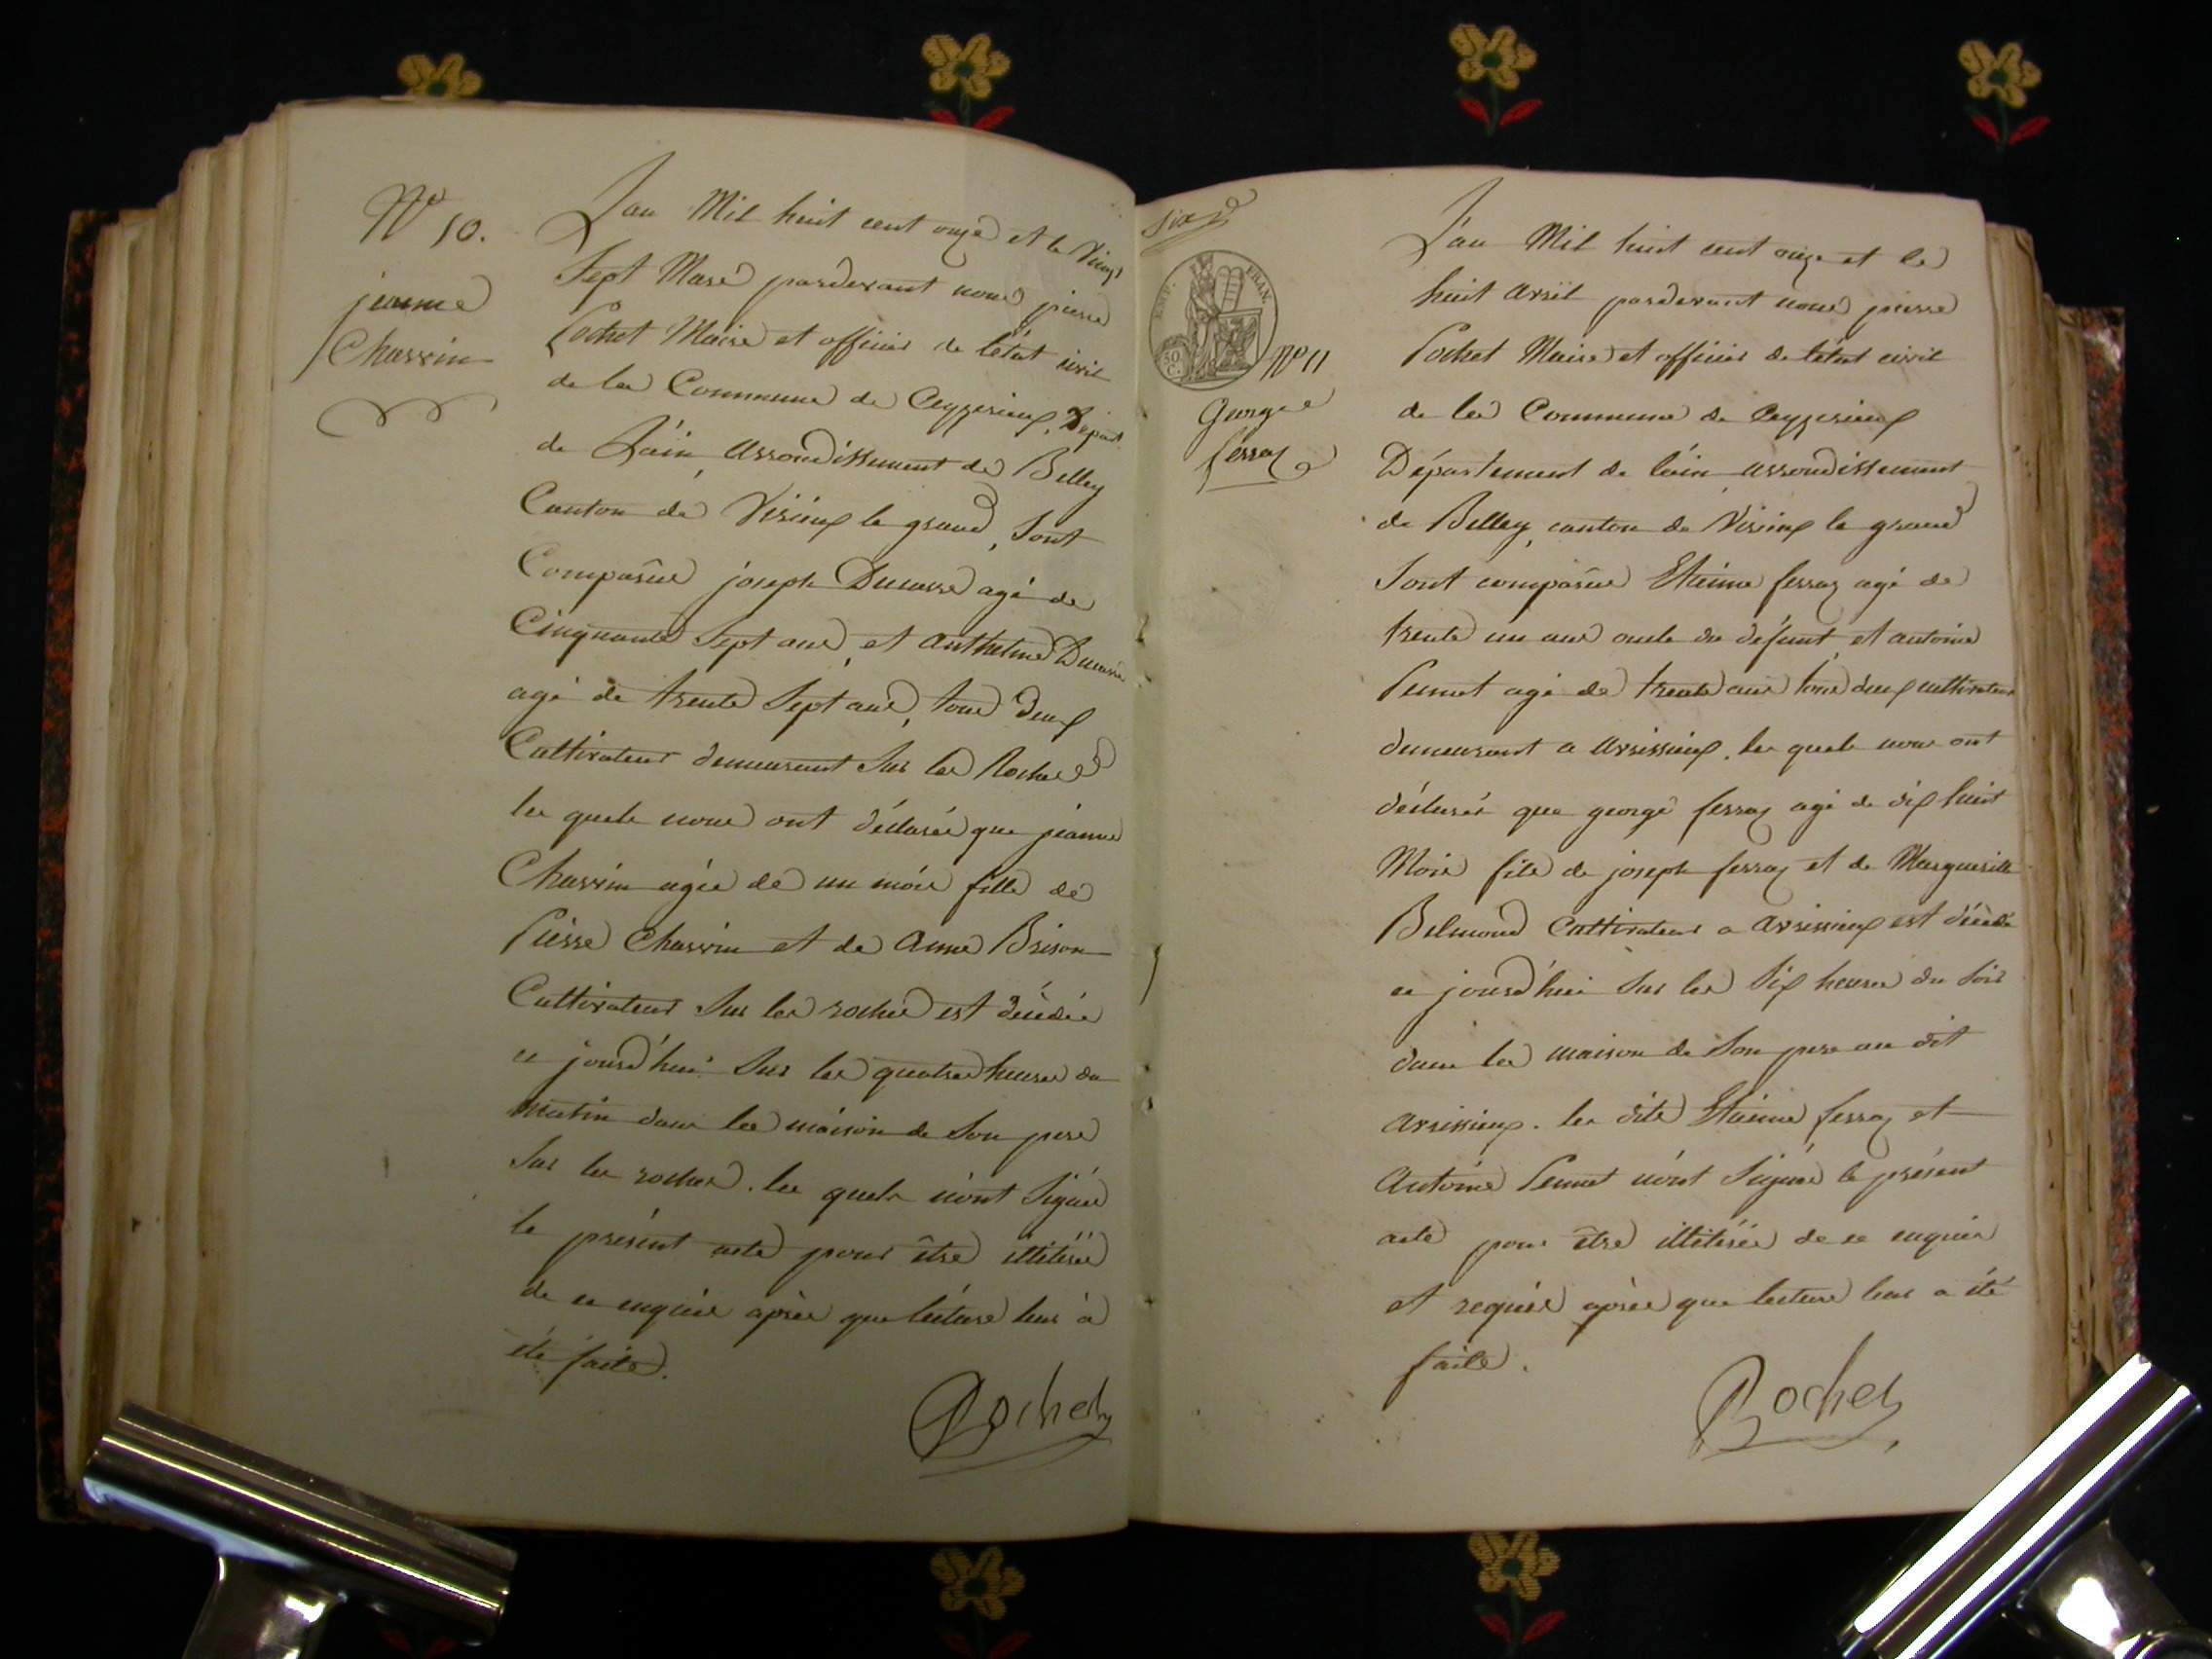 N° 10.
jeanne
Charvin
L'an Mil huit cent onze et le Vingt
Sept Mars pardevant nous pierre
Pochet Maire et officier de l'état civil
de la Commune de Ceyzerieux, Départ
de L'ain, arrondissement de Belley
Canton de Virieux le grand, Sont
Comparûs joseph Ducarre agé de
Cinquante Sept ans, et anthelme Ducarre
agé de trente Sept ans, tous deux
Cultivateurs demeurant Sur les Roches
les quels nous ont déclarés que jeanne
Charvin agée de un mois fille de
Pierre Charvin et de anne Brison
Cultivateurs Sur les roches est décédée
ce jourd'hui Sur les quatres heures du
matin dans la maison de Son pere
Sur les roches. les quels n'ont Signés
le présent acte pour être illitérés
de ce enquis après que lecture leur à
été faite.
Pochet
Six
EMP. FRAN.
50 C.
N° 11
George
ferraz
L'an Mil huit cent onze et le
huit avril pardevant nous pierre
Pochet Maire et officier de l'état civil
de la Commune de Ceyzerieux
Département de l'ain, arrondissement
de Belley, canton de Virieux le grand
Sont comparûs Etienne ferraz agé de
trente un ans oncle du défunt, et antoine
Pennet agé de trente ans tous deux cultivateurs
demeurant a avrissieux. les quels nous ont
déclarés que george ferraz agé de dix huit
Mois fils de joseph ferraz et de Marguerite
Belmond Cultivateurs a avrissieux est décédé
ce jourd'hui Sur les Six heures du Soir
dans la maison de Son pere au dit
avrissieux. les dits Etienne ferraz et
Antoine Pennet n'ont Signés le présent
acte pour être illitérés de ce enquis
et requis après que lecture leur a été
faite.
Pochet